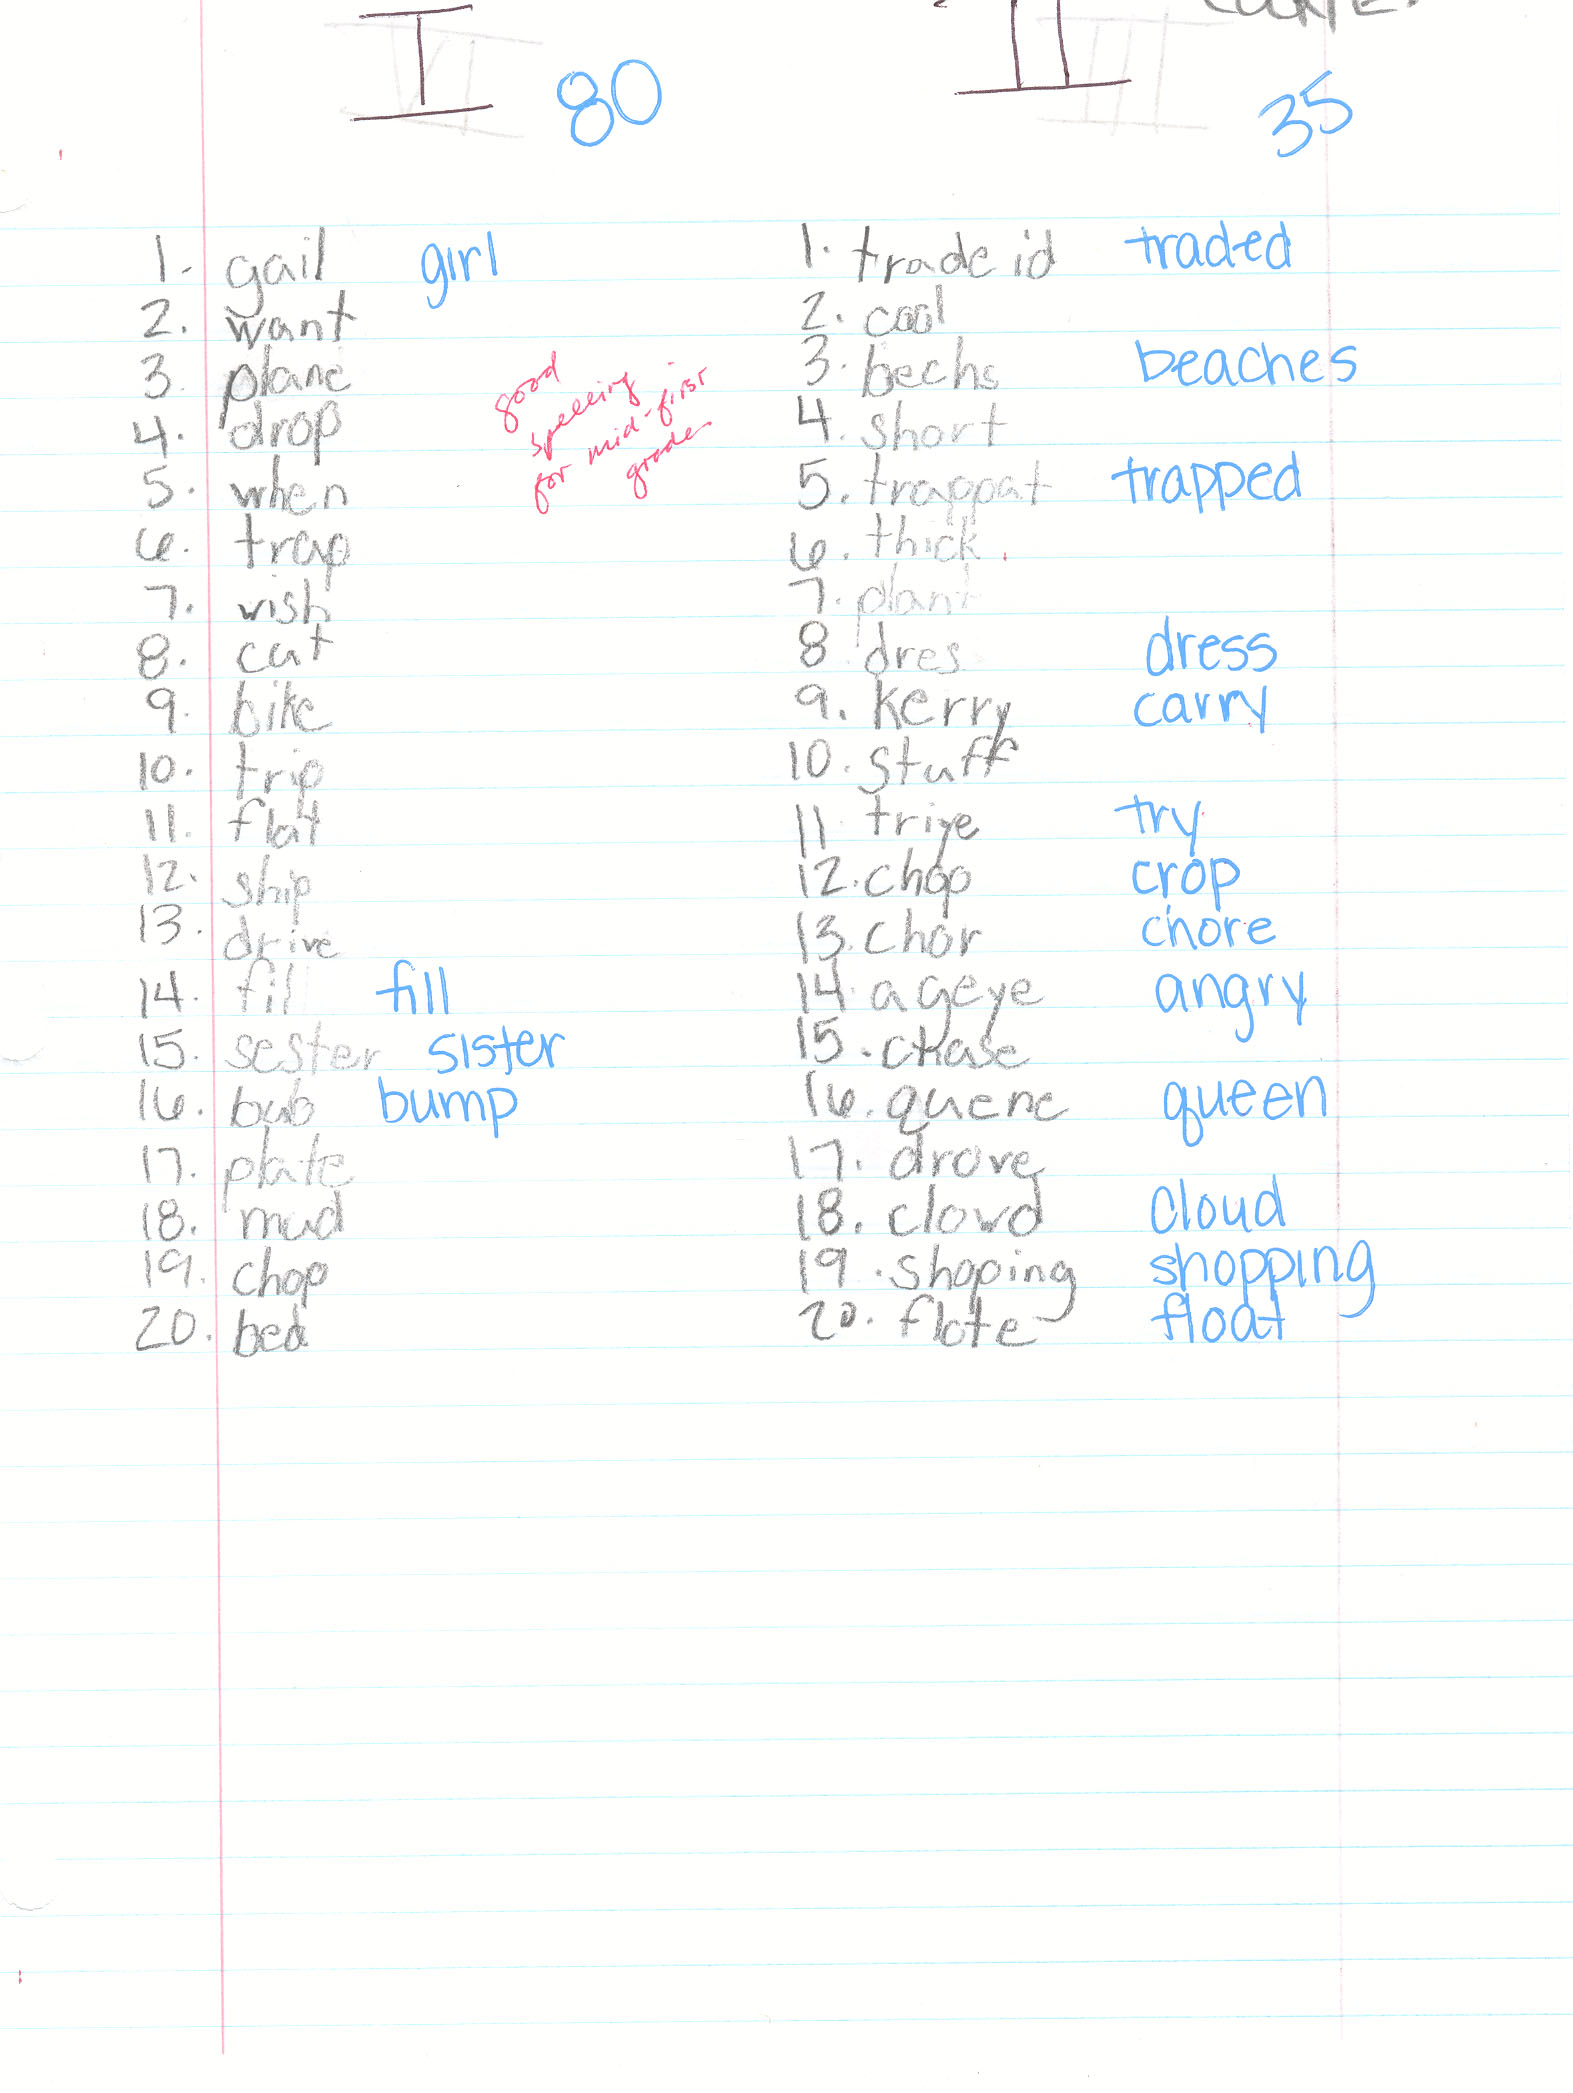 I 80
II 35
1. gail girl
2. want
3. plane
4. drop
5. when
6. trap
7. wish
8. cat
9. bike
10. trip
11. flat
12. ship
13. drive
14. fil fill
15. sester sister
16. bub bump
17. plate
18. mud
19. chop
20. bed
good
spelling
for mid-first
grade
1. tradeid traded
2. cool
3. bechs beaches
4. short
5. trappat trapped
6. thick
7. plant
8 dres dress
9. kerry carry
10. stuff
11 triye try
12. chop crop
13. chor chore
14. ageye angry
15. chase
16. quene queen
17. drove
18. clowd cloud
19. shoping shopping
20. flote float